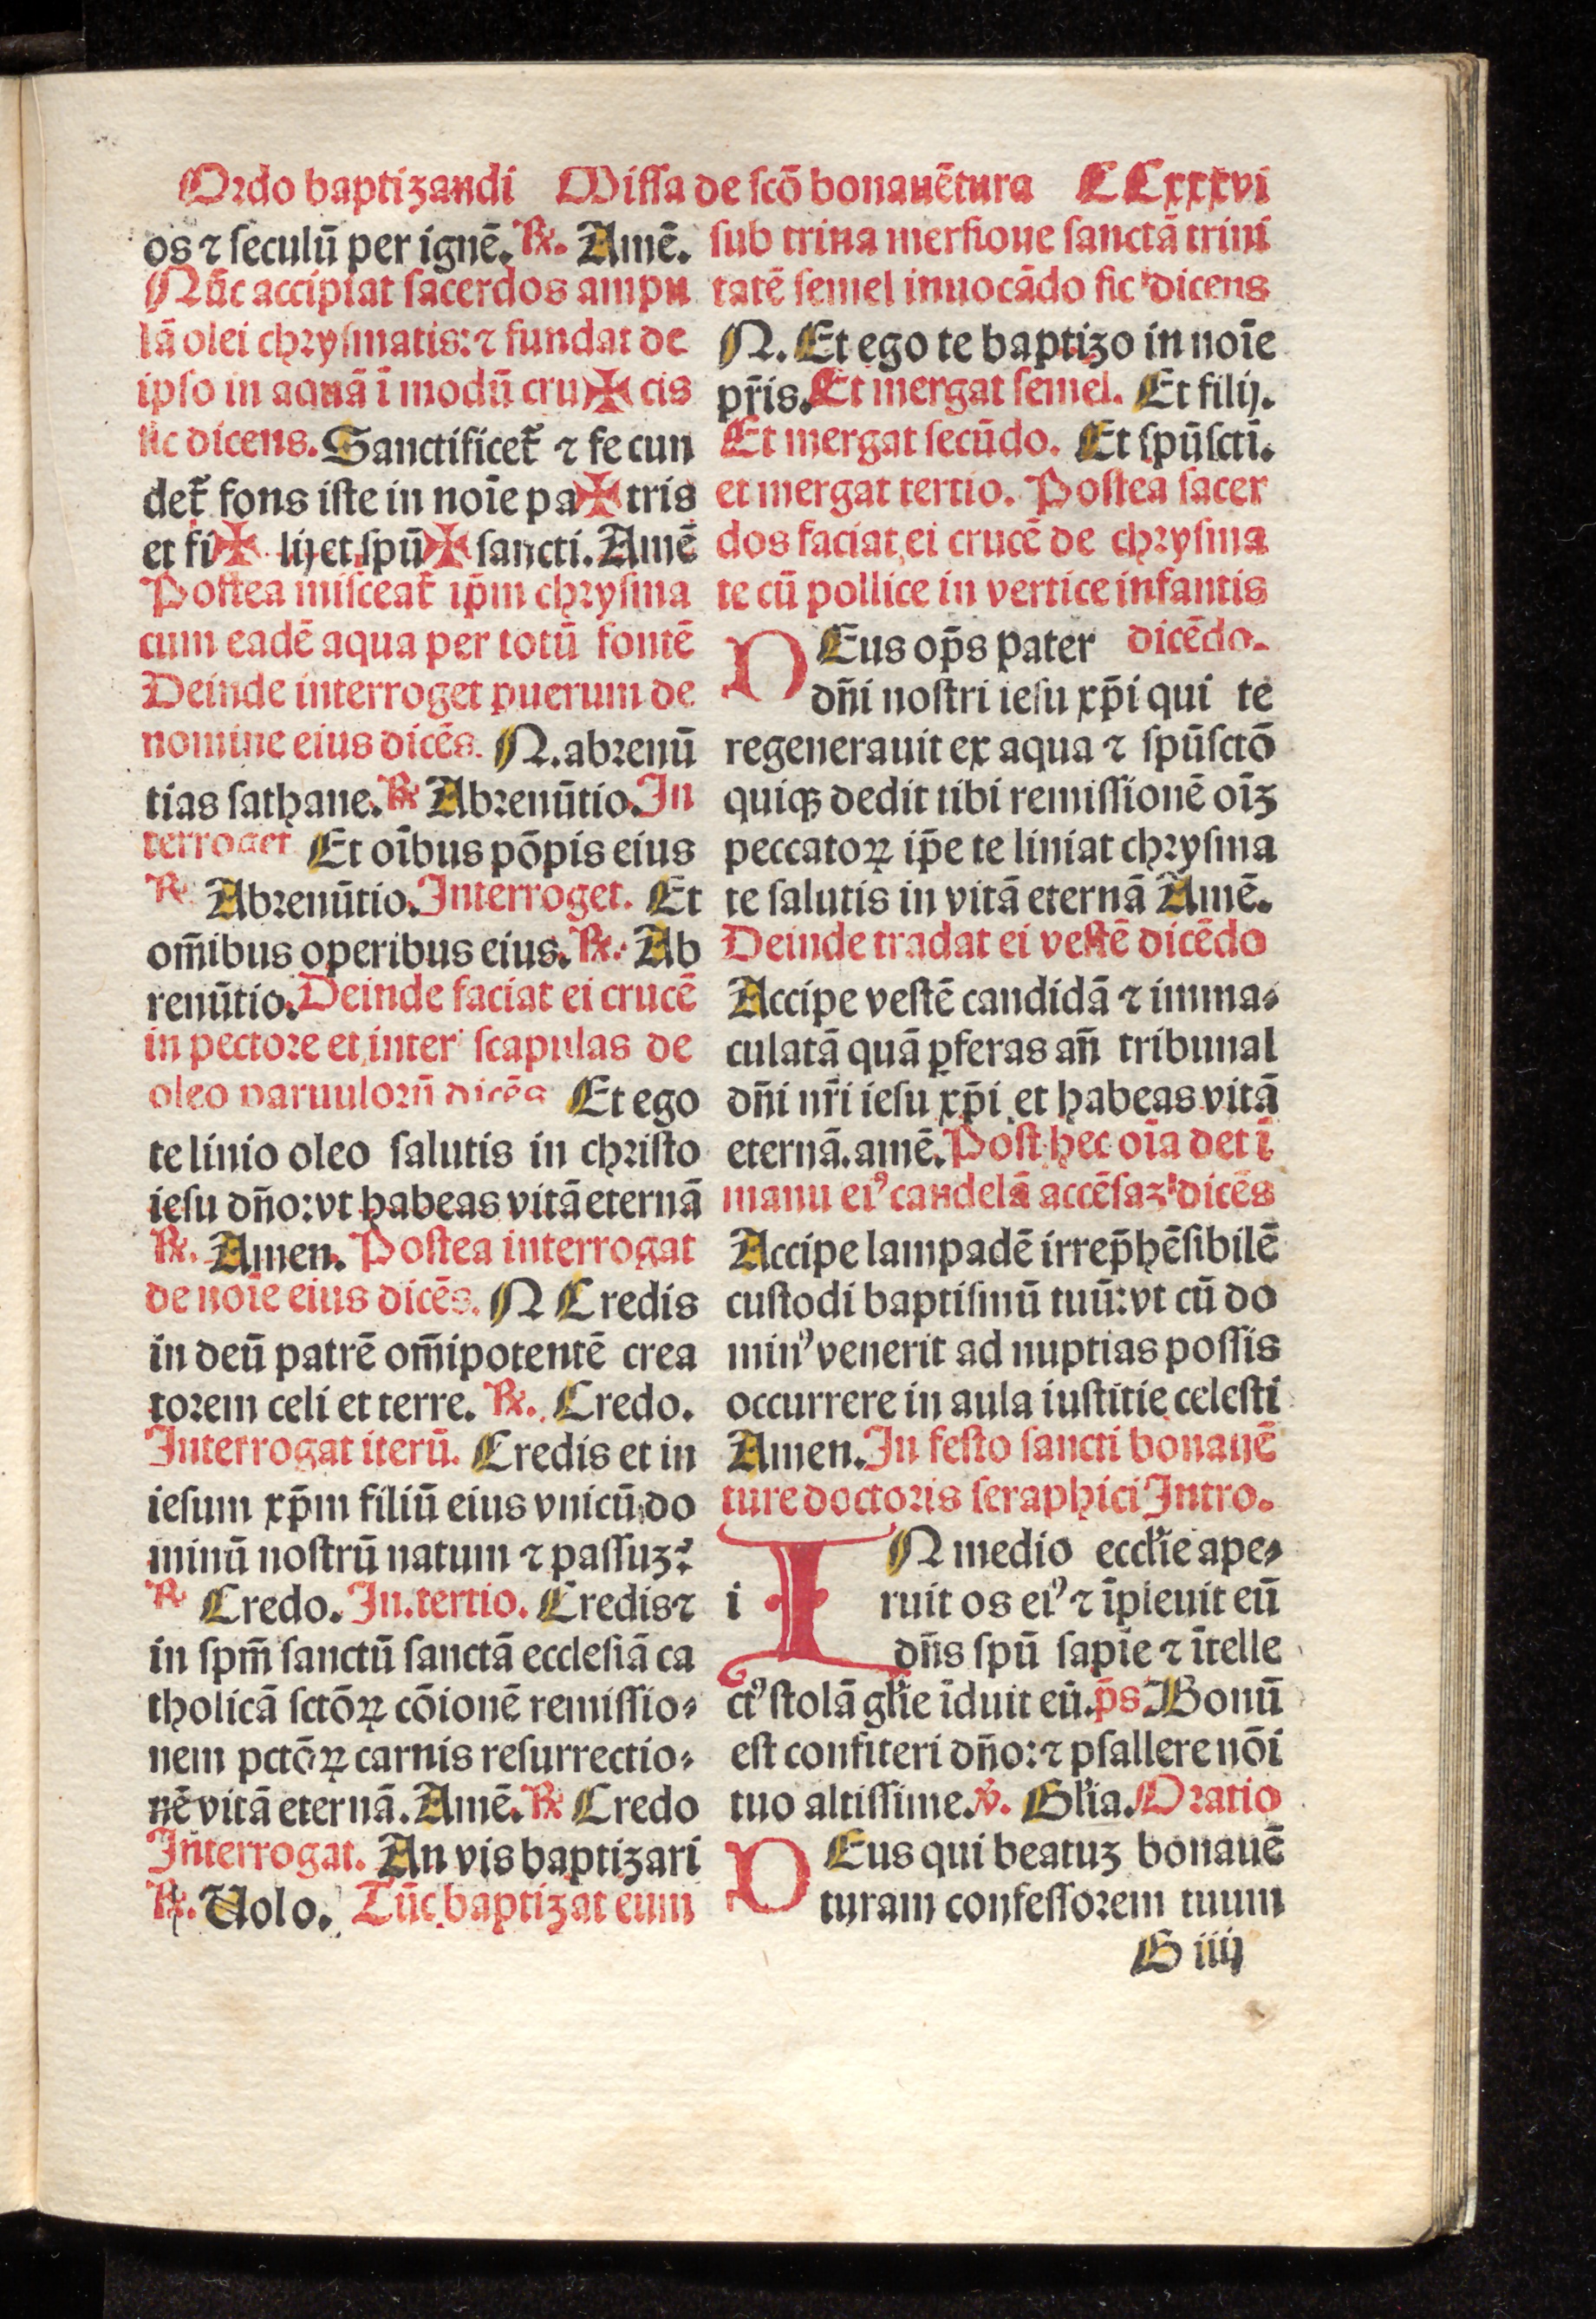 Ordo baptizandi Missa de scō bonauētura CCxxxvi
os ⁊ seculū per ignē. ℞. Amē.
Nūc accipiat sacerdos ampu
lā olei chrysmatis: ⁊ fundat de
ipso in aquā ī modū cru✠cis
sic dicens. Sanctificet̄ ⁊ fecun
det̄ fons iste in noīe pa✠tris
et fi✠lij et spū✠sancti. Amē
Postea misceat̄ ip̄m chrysma
cum eadē aqua per totū fontē
Deinde interroget puerum de
nomine eius dicēs. N. abrenū
tias sathane. ℞ Abrenūtio. In
terroget Et oībus pōpis eius
℞ Abrenūtio. Interroget. Et
om̄ibus operibus eius. ℞. Ab
renūtio. Deinde faciat ei crucē
in pectore et inter scapulas de
oleo paruulorū dicēs Et ego
te linio oleo salutis in christo
iesu dn̄o: vt habeas vitā eternā
℞. Amen. Postea interrogat
de noīe eius dicēs. N Credis
in deū patrē om̄ipotentē crea
torem celi et terre. ℞. Credo.
Interrogat iterū. Credis et in
iesum xp̄m filiū eius vnicū do
minū nostrū natum ⁊ passuꝫ?
℞ Credo. In tertio. Credis ⁊
in spm̄ sanctū sanctā ecclesiā ca
tholicā sctōꝝ cōionē remissio⸗
nem pctōꝝ carnis resurrectio⸗
nē vitā eternā. Amē. ℞ Credo
Interrogat. An vis baptizari
℞. Uolo. Tūc baptizat eum
sub trina mersione sanctā trini
tatē semel inuocādo sic dicens
N. Et ego te baptizo in noīe
pr̄is. Et mergat semel. Et filij.
Et mergat secūdo. Et spūsctī.
et mergat tertio. Postea sacer
dos faciat ei crucē de chrysma
te cū pollice in vertice infantis
DEus op̄s pater dicēdo.
dn̄i nostri iesu xp̄i qui te
regenerauit ex aqua ⁊ spūsctō
quiqꝫ dedit tibi remissionē oīꝫ
peccatoꝝ ip̄e te liniat chrysma
te salutis in vitā eternā Amē.
Deinde tradat ei vestē dicēdo
Accipe vestē candidā ⁊ imma⸗
culatā quā ꝑferas an̄ tribunal
dn̄i nr̄i iesu xp̄i et habeas vitā
eternā. amē. Post hec oīa det ī
manu eiꝰ candelā accēsaꝫ dicēs
Accipe lampadē irrep̄hēsibilē
custodi baptismū tuū: vt cū do
minꝰ venerit ad nuptias possis
occurrere in aula iustitie celesti
Amen. In festo sancti bonauē
ture doctoris seraphici Intro.
IN medio eccl̄ie ape⸗
i ruit os eiꝰ ⁊ īpleuit eū
dn̄s spū sapīe ⁊ ītelle
ctꝰ stolā gl̄ie īduit eū. p̄s. Bonū
est confiteri dn̄o: ⁊ psallere nōi
tuo altissime. ℣. Gl̄ia. Oratio
DEus qui beatuꝫ bonauē
turam confessorem tuum
G iiij